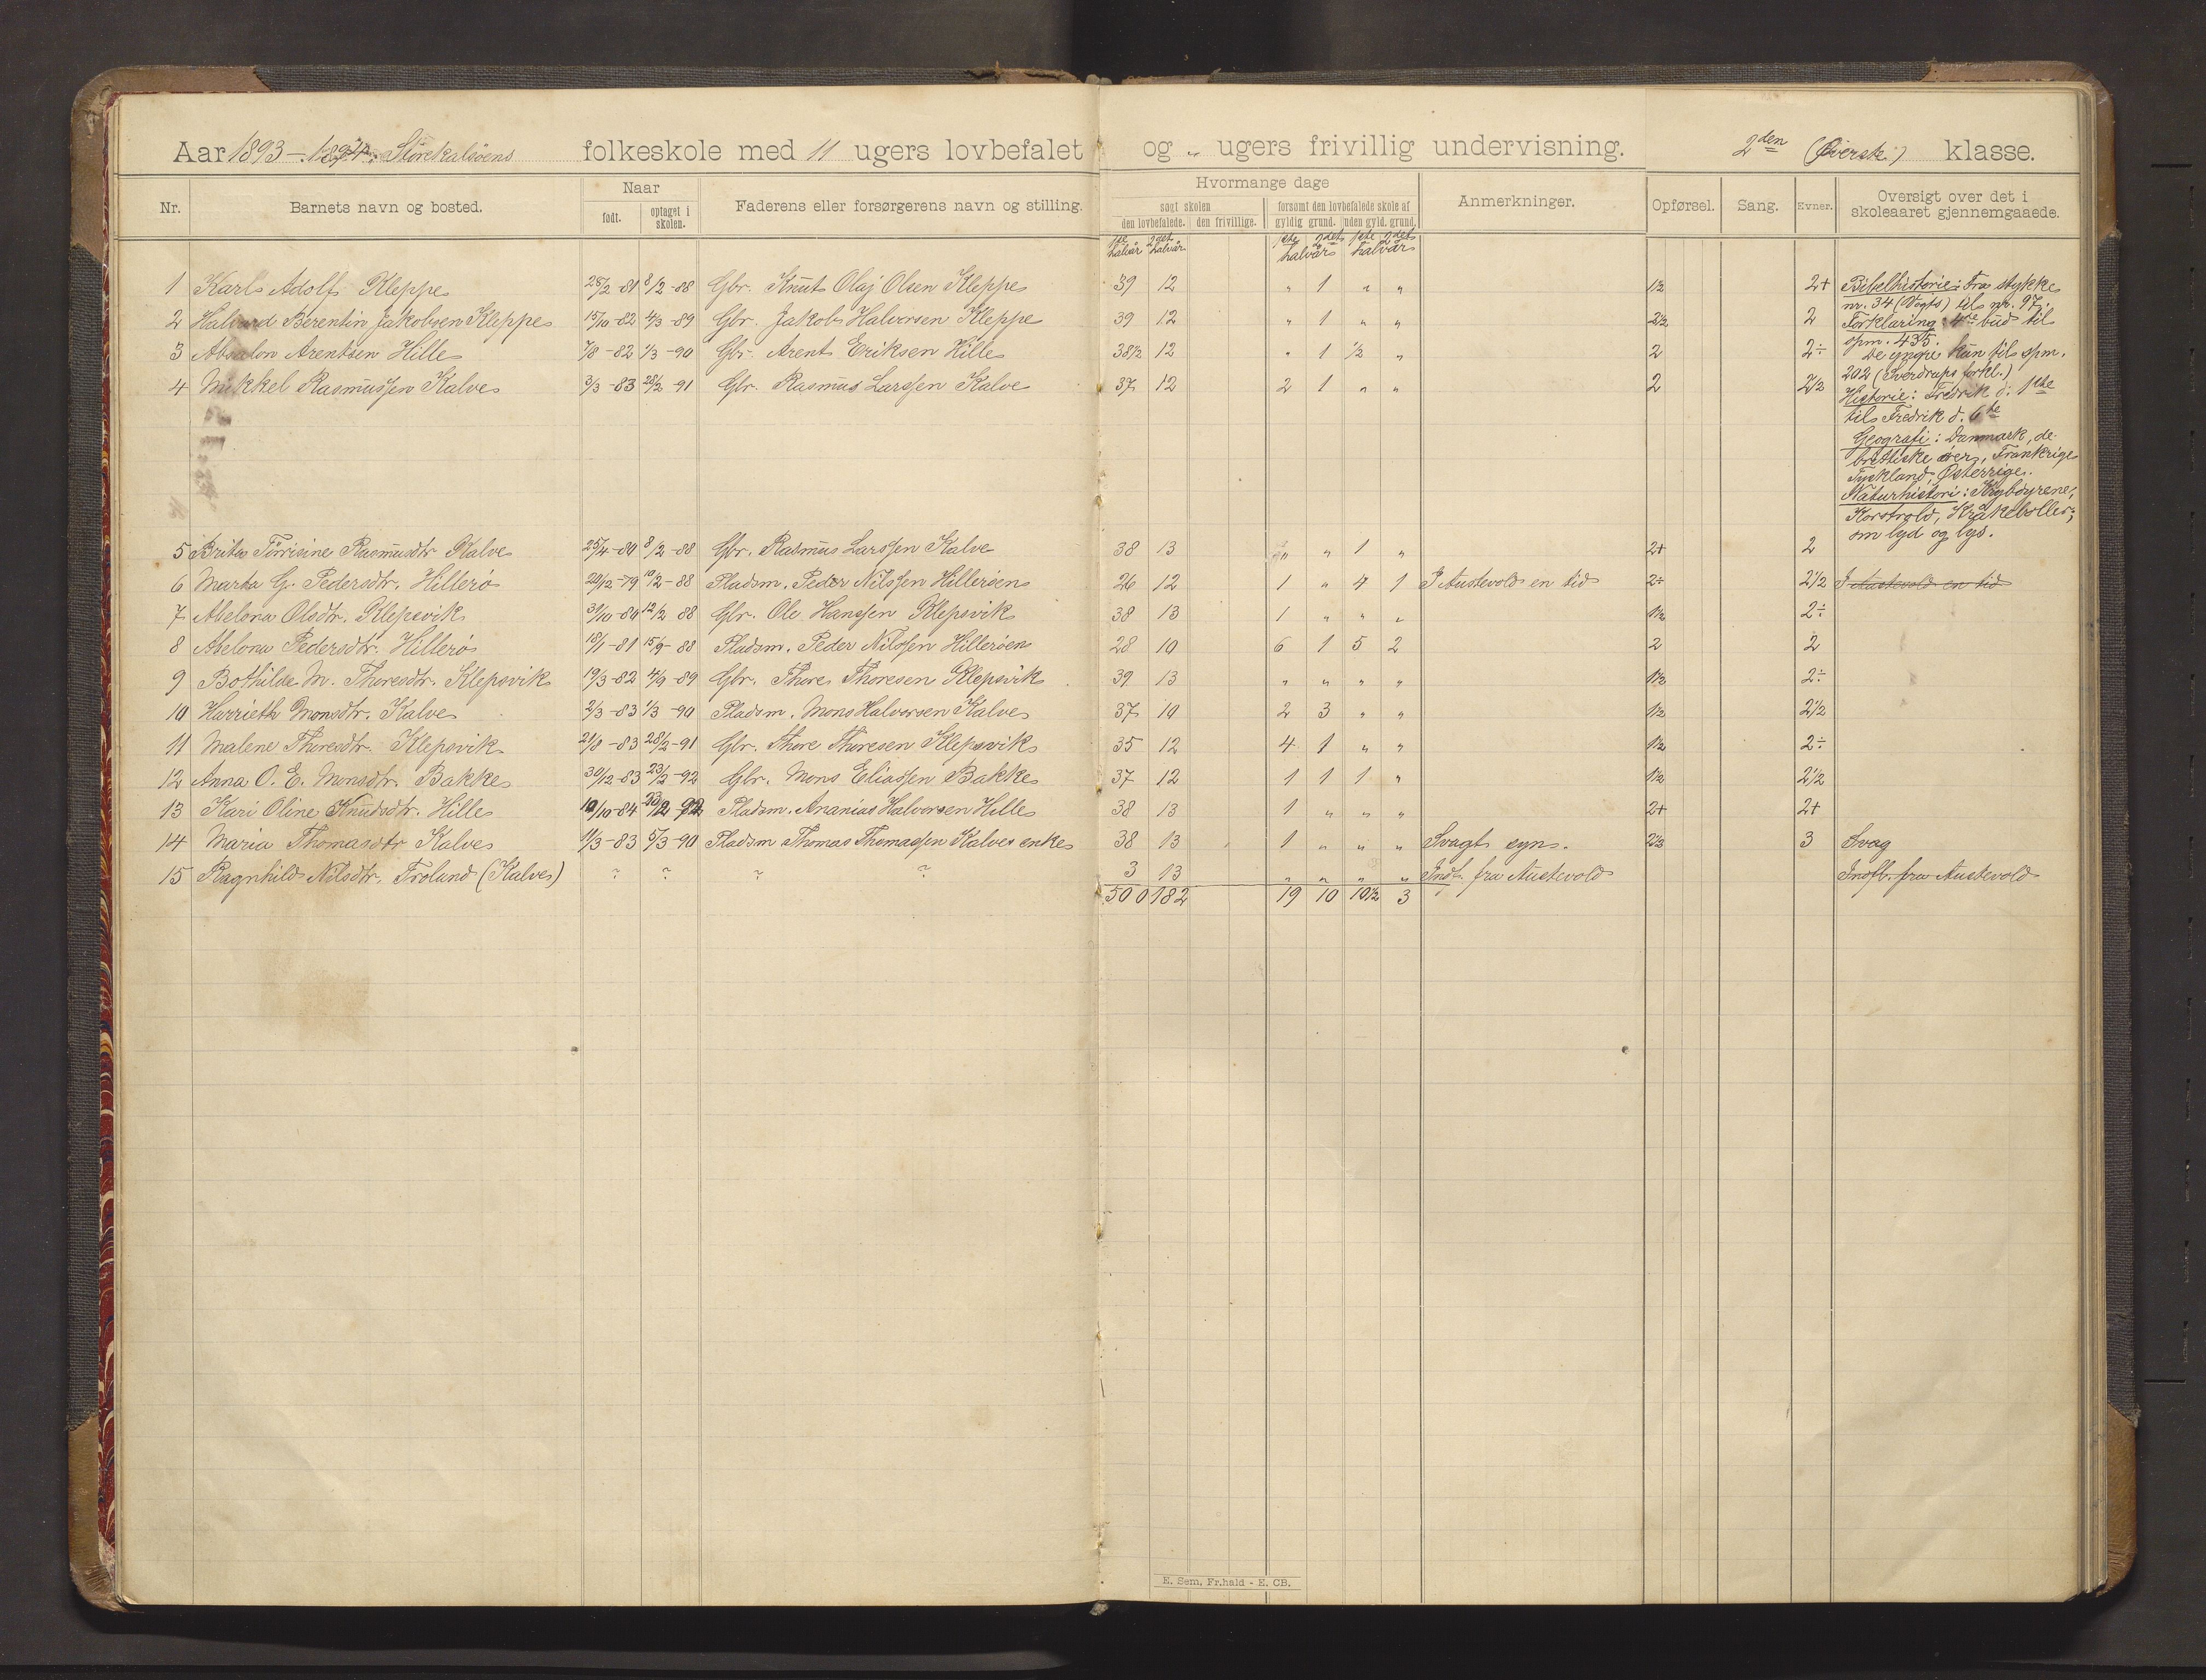 Aar 1893-1894. Storekalsøens folkeskole med 11 ugers lovbefalet og " ugers frivillig undervisning. 2den (Øverste) klasse.
Nr. Barnets navn og bosted. Naar født. optaget i skolen. Faderens eller forsørgerens navn og stilling. Hvormange dage søgt skolen den lovbefalede. den frivillige. forsømt den lovbefalede skole af gyldig grund. uden gyld. grund. Anmerkninger. Opførsel. Sang. Evner. Oversigt over det i skoleaaret gjennemgaaede.
1ste halvår 2det halvår 1ste 2det halvår 1ste 2det halvår
1 Karl Adolf Kleppe 28/2-81 8/2-88 Gbr. Knut Olaj Olsen Kleppe 39 12 " 1 " " 1½ 2+ Bibelhistorie: Fra stykke
nr. 34 (Vogts) til nr. 97.
2 Halvard Berentin Jakobsen Kleppe 15/10-82 4/3-89 Gbr. Jakob Halvorsen Kleppe 39 12 " 1 " " 2½ 2 Forklaring: 4de bud til
spm. 435.
3 Absalon Arentsen Hille 7/8-82 1/3-90 Gbr. Arent Eriksen Hille 38½ 12 " 1 ½ " 2 2÷ De yngre kun til spm.
202 (Sverdrups forkl.)
4 Mikkel Rasmussen Kalve 3/3-83 28/2-91 Gbr. Rasmus Larssen Kalve 37 12 2 1 " " 2 2½ Historie: Fredrik d. 1ste
til Fredrik d. 6te
Geografi: Danmark, de
brittiske øer, Frankrige
Tyskland, Østerrige.
Naturhistori: Krybdyrene,
Korstrold, Kråkeboller;
om lyd og lys.
5 Brita Tørrisine Rasmusdtr Kalve 25/4-80 8/2-88 Gbr. Rasmus Larssen Kalve 38 13 " " 1 " 2+ 2
6 Marta G. Pedersdtr. Hillerø 20/12-79 10/2-88 Pladsm. Peder Nilssen Hillerøen 26 12 1 " 4 1 I Austevold en tid 2÷ 2½ I Austevold en tid
7 Abelona Olsdtr. Klepsvik 31/10-80 12/2 88 Gbr. Ole Hanssen Klepsvik 38 13 1 " " " 1½ 2÷
8 Abelona Pedersdtr. Hillerø 18/1-81 15/9-88 Pladsm. Peder Nilssen Hillerøen 28 10 6 1 5 2 2 2
9 Bothilde M. Thoresdtr. Klepsvik 19/3-82 4/9 89 Gbr. Thore Thoresen Klepsvik 39 13 " " " " 1½ 2÷
10 Harrieth Monsdtr. Kalve 2/3-83 1/3-90 Pladsm. Mons Halvorsen Kalve 37 10 2 3 " " 1½ 2½
11 Malene Thoresdtr. Klepsvik 21/8-83 28/2-91 Gbr. Thore Thoresen Klepsvik 35 12 4 1 " " 1½ 2÷
12 Anna O. E. Monsdtr. Bakke 30/12-83 23/2-92 Gbr. Mons Eliassen Bakke 37 12 1 1 1 " 1½ 2½
13 Kari Oline Knudsdtr. Hille 10/10-84 23/2 92 Pladsm. Ananias Halvorsen Hille 38 13 1 " " " 2+ 2+
14 Maria Thomasdtr Kalve 11/3-83 5/3-90 Pladsm Thomas Thomassen Kalves enke 38 13 1 " " " Svagt syn. 2½ 3 Svag
15 Ragnhild Nilsdtr. Froland (Kalve) ? ? ? ? 3 13 " " " " Indf. fra Austevold Indfl. fra Austevold
500 182 19 10 10½ 3
E. Sem, Fr.hald - E. CB.